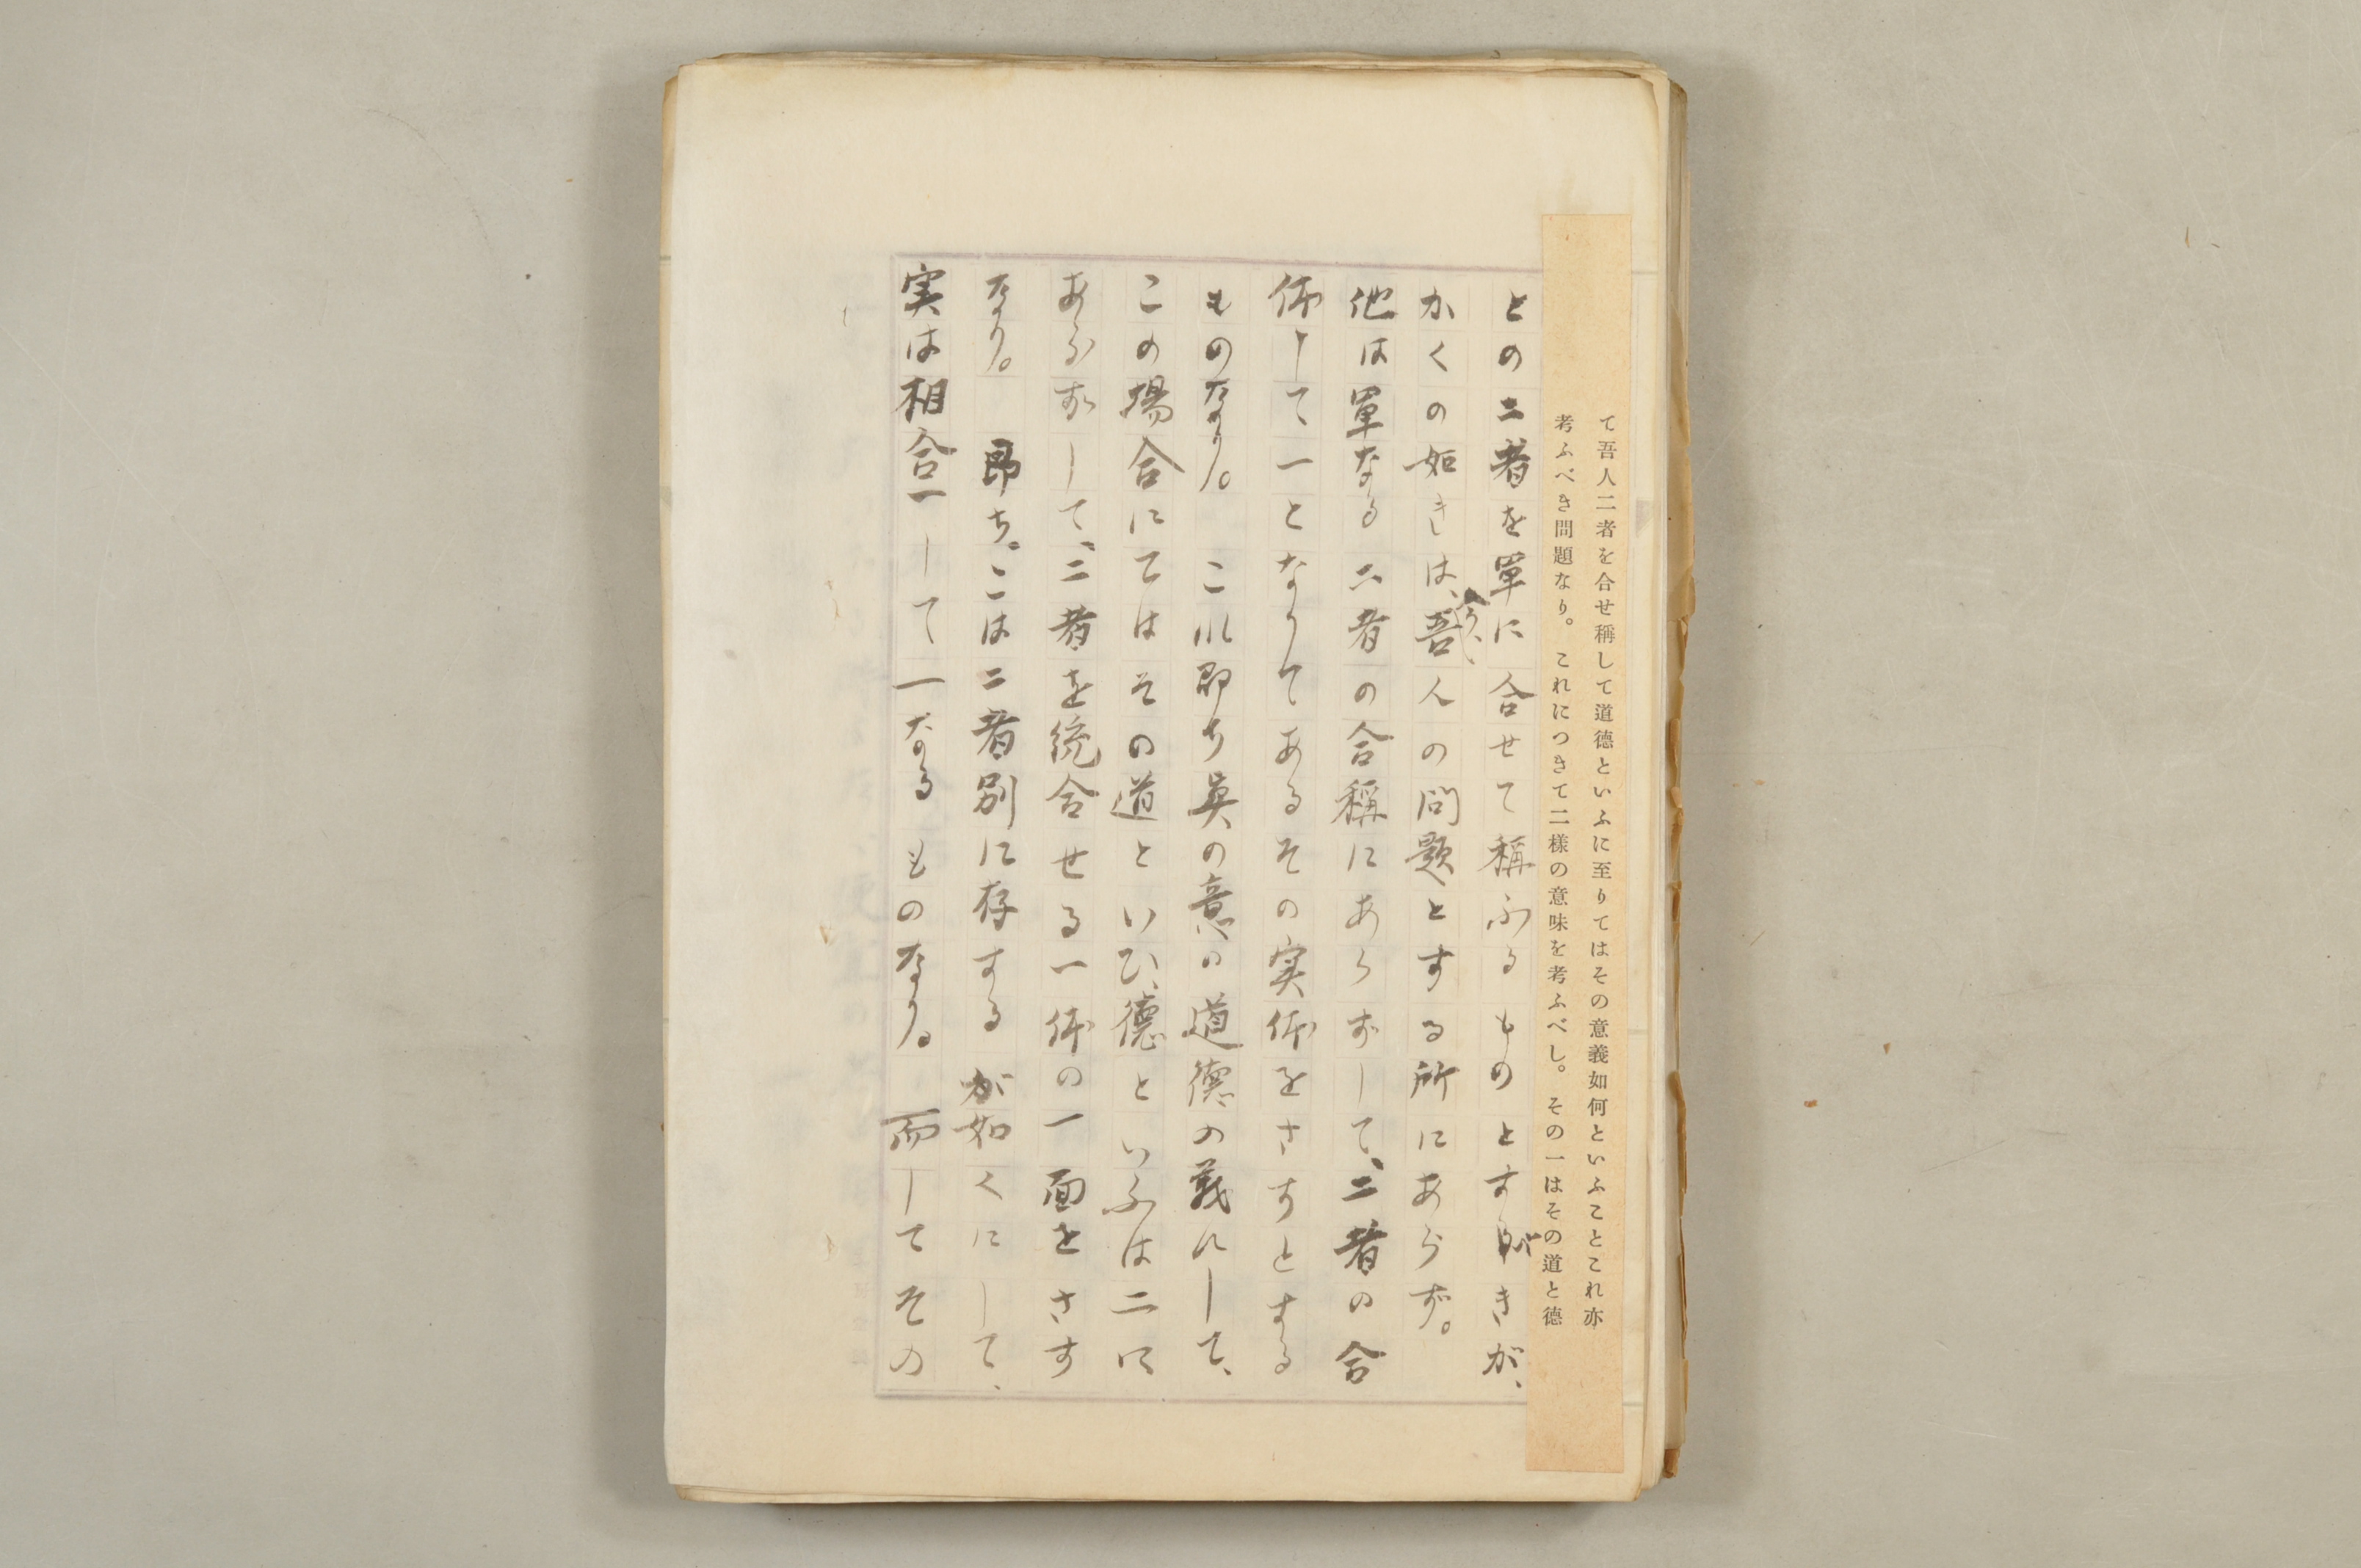 て吾人二者を合せ稱して道德といふに至りてはその意義如何といふことこれ亦
考ふべき問題なり。これにつきて二樣の意味を考ふべし。その一はその道と德
との二者を單に合せて稱ふるものとす べきが、
かくの如きは、吾人の問題とする所にあらず。
他は單なる二者の合稱にあらずして、二者の合
体して一となりてあるその実体をさすとする
ものなり。これ即ち眞の意の道德の義にして、
この場合にてはその道といひ、德といふは二に
あらずして、二者を統合せる一体の一面をさす
なり。即ち、こは二者別に存するが如くにして、
実は相合一して一なるものなり。而してその